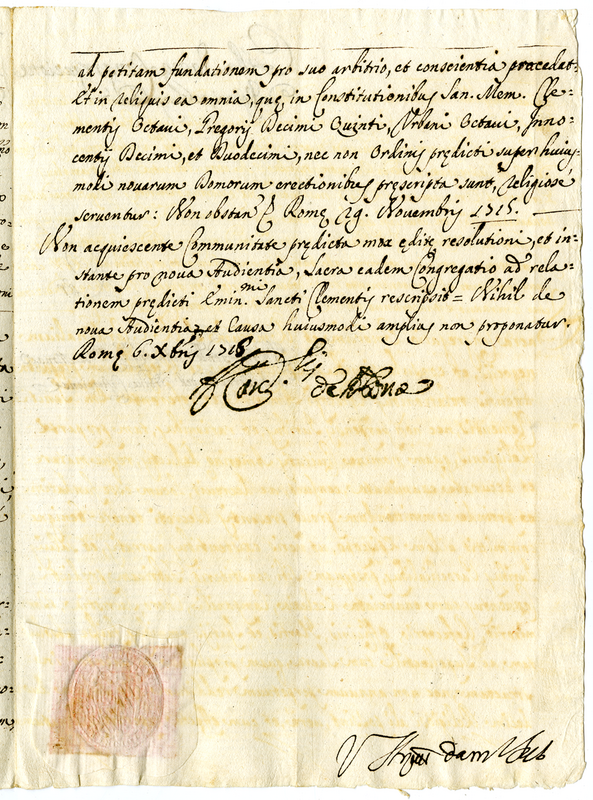 ad petitam fundationem pro suo arbitrio, et conscientia procedat.
Et in reliquis ea omnia, quę, in Constitutionibus San. Mem. Cle=
mentis Octavi, Gregorij Decimi Quinti, Urbani Octavi, Inno=
centij Decimi, et Duodecimi, nec non Ordinis prędicti super huius=
modi novarum Domorum erectionibus pręscripta sunt, religiosè
serventur: Non obstan. Romę 29. Novembris 1715.
Non acquiescente Communitate prędicta mox editę resolutioni, et in=
stante pro nova Studientia, Sacra eadem Congregatio ad rela=
tionem prędicti Emin.mi Sancti Clementis rescripsit = Nihil de
nova Studientia, et Causa huiusmodi amplius non proponatur.
Romę 6. Xbris 1716